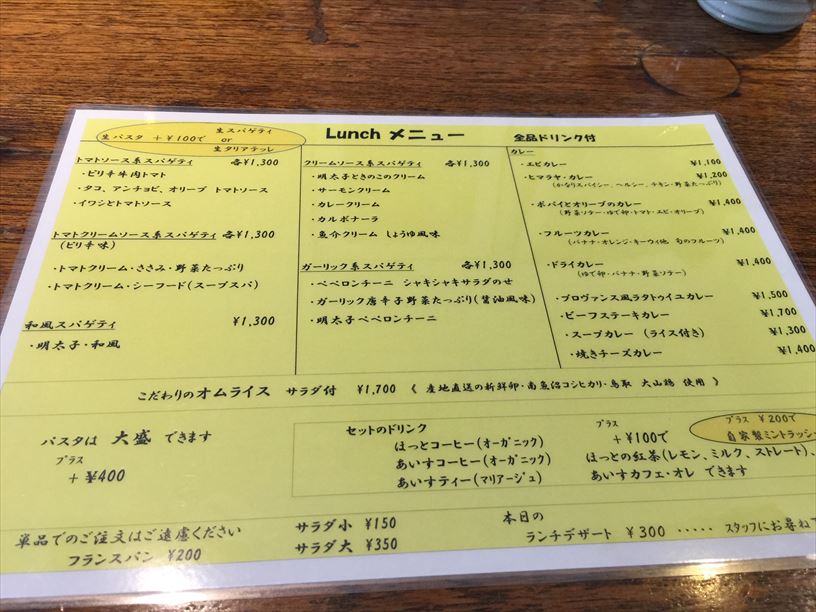 生パスタ +¥100で 生スパゲティ or 生タリアテッレ
Lunch メニュー 全品ドリンク付
トマトソース系スパゲティ 各¥1,300
・ピリ辛牛肉トマト
・タコ、アンチョビ、オリーブ トマトソース
・イワシとトマトソース
トマトクリームソース系スパゲティ 各¥1,300
(ピリ辛味)
・トマトクリーム・ささみ・野菜たっぷり
・トマトクリーム・シーフード(スープスパ)
和風スパゲティ ¥1,300
・明太子・和風
クリームソース系スパゲティ 各¥1,300
・明太子ときのこのクリーム
・サーモンクリーム
・カレークリーム
・カルボナーラ
・魚介クリーム しょうゆ風味
ガーリック系スパゲティ 各¥1,300
・ペペロンチーニ シャキシャキサラダのせ
・ガーリック唐辛子野菜たっぷり(醤油風味)
・明太子ペペロンチーニ
カレー
・エビカレー ¥1,100
・ヒマラヤ・カレー ¥1,200
(かなりスパイシー、ヘルシー、チキン・野菜たっぷり)
・ポパイとオリーブのカレー ¥1,400
(野菜ソテー・ゆで卵・トマト・エビ・オリーブ)
・フルーツカレー ¥1,400
(バナナ・オレンジ・キーウィ他 旬のフルーツ)
・ドライカレー ¥1,400
(ゆで卵・バナナ・野菜ソテー)
・プロヴァンス風ラタトゥイユカレー ¥1,500
・ビーフステーキカレー ¥1,700
・スープカレー (ライス付き) ¥1,300
・焼きチーズカレー ¥1,400
こだわりのオムライス サラダ付 ¥1,700 《 産地直送の新鮮卵・南魚沼コシヒカリ・鳥取 大山鶏 使用 》
パスタは 大盛 できます
プラス
+¥400
セットのドリンク
ほっとコーヒー(オーガニック)
あいすコーヒー(オーガニック)
あいすティー(マリアージュ)
プラス
+¥100で
ほっとの紅茶(レモン、ミルク、ストレート)、
あいすカフェ・オレ できます
プラス ¥200で
自家製ミントラッシー
単品でのご注文はご遠慮ください
フランスパン ¥200
サラダ小 ¥150
サラダ大 ¥350
本日の
ランチデザート ¥300 ‥‥‥ スタッフにお尋ね